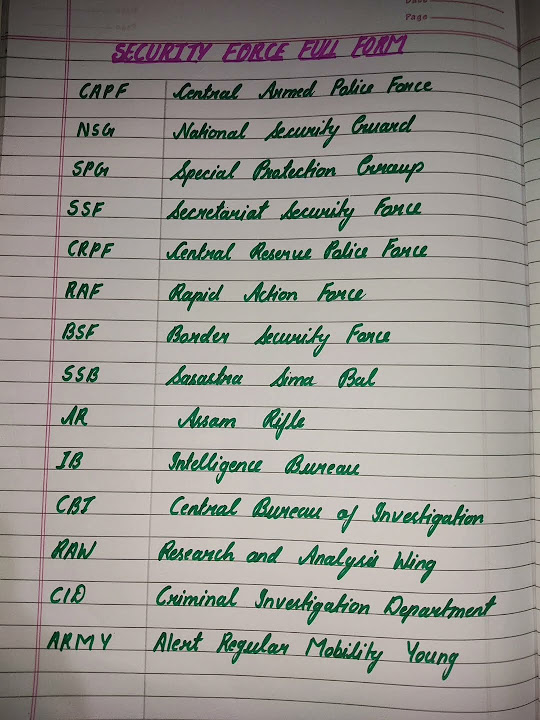 Date
Page
SECURITY FORCE FULL FORM
CAPF Central Armed Police Force
NSG National Security Guard
SPG Special Protection Group
SSF Secretariat Security Force
CRPF Central Reserve Police Force
RAF Rapid Action Force
BSF Border Security Force
SSB Sasastra Sima Bal
AR Assam Rifle
IB Intelligence Bureau
CBI Central Bureau of Investigation
RAW Research and Analysis Wing
CID Criminal Investigation Department
ARMY Alert Regular Mobility Young